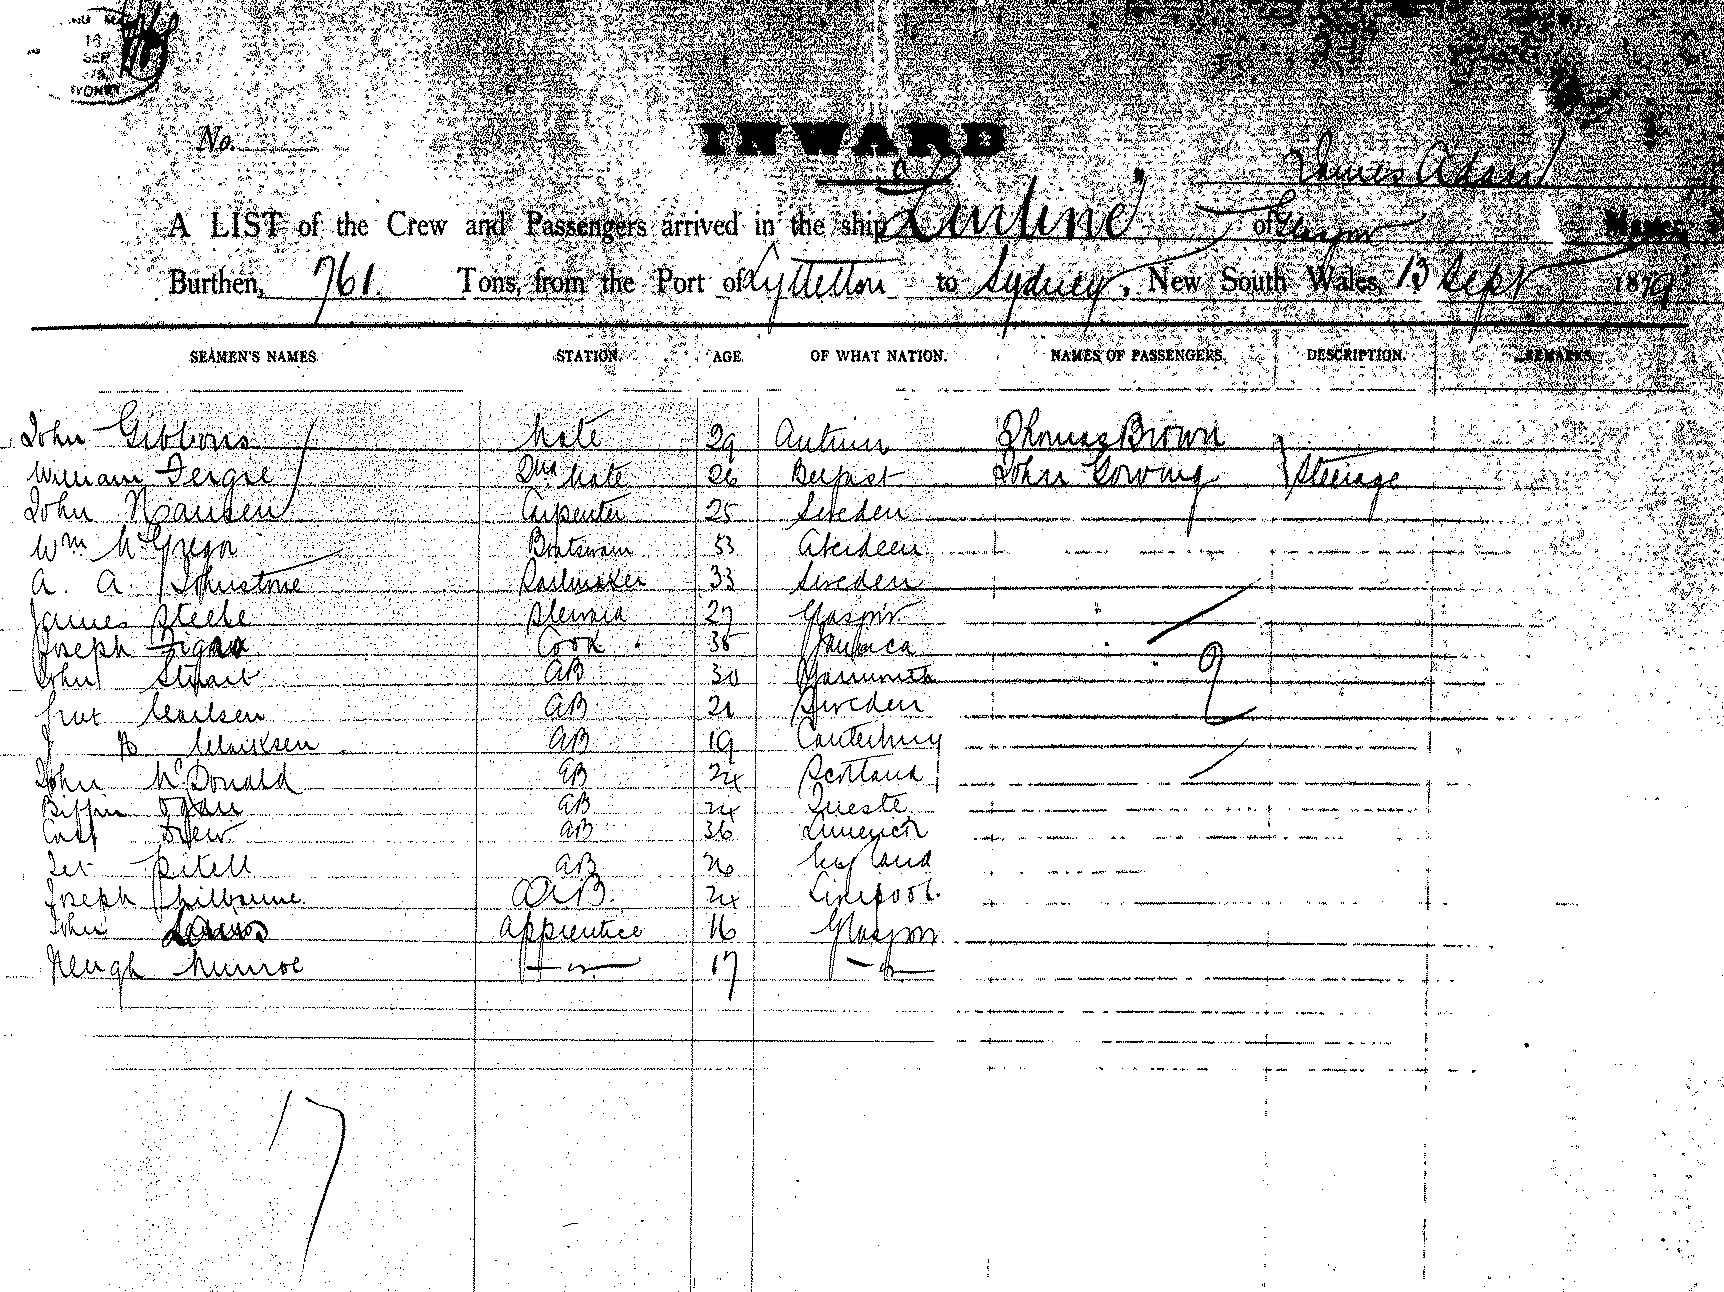 13
SEP
SYDNEY
No.
INWARD
James Adam
A LIST of the Crew and Passengers arrived in the ship "Lurline" of Glasgow Master,
Burthen, 761. Tons, from the Port of Lyttelton to Sydney, New South Wales, 13 Sept 1879
SEAMEN'S NAMES STATION. AGE OF WHAT NATION. NAMES OF PASSENGERS. DESCRIPTION. REMARKS.
John Gibbons Mate 29 Antrim Thomas Brown
William Fergie 2nd Mate 26 Belfast John Gowing Steerage
John Hansen Carpenter 25 Sweden
Wm McGregor Boatswain 53 Aberdeen
A. A. Johnstone Sailmaker 33 Sweden
James Steele Steward 27 Glasgow
Joseph Cook 38 Jamaica
John Stuart AB 30 Yarmouth
AB 21 Sweden
AB 19 Canterbury
John McDonald AB 24 Scotland
AB 24 Trieste
Drew AB 36 Limerick
AB 26 England
Joseph AB. 24 Liverpool
John Apprentice 16 Glasgow
Heugh Munroe 17
2
17